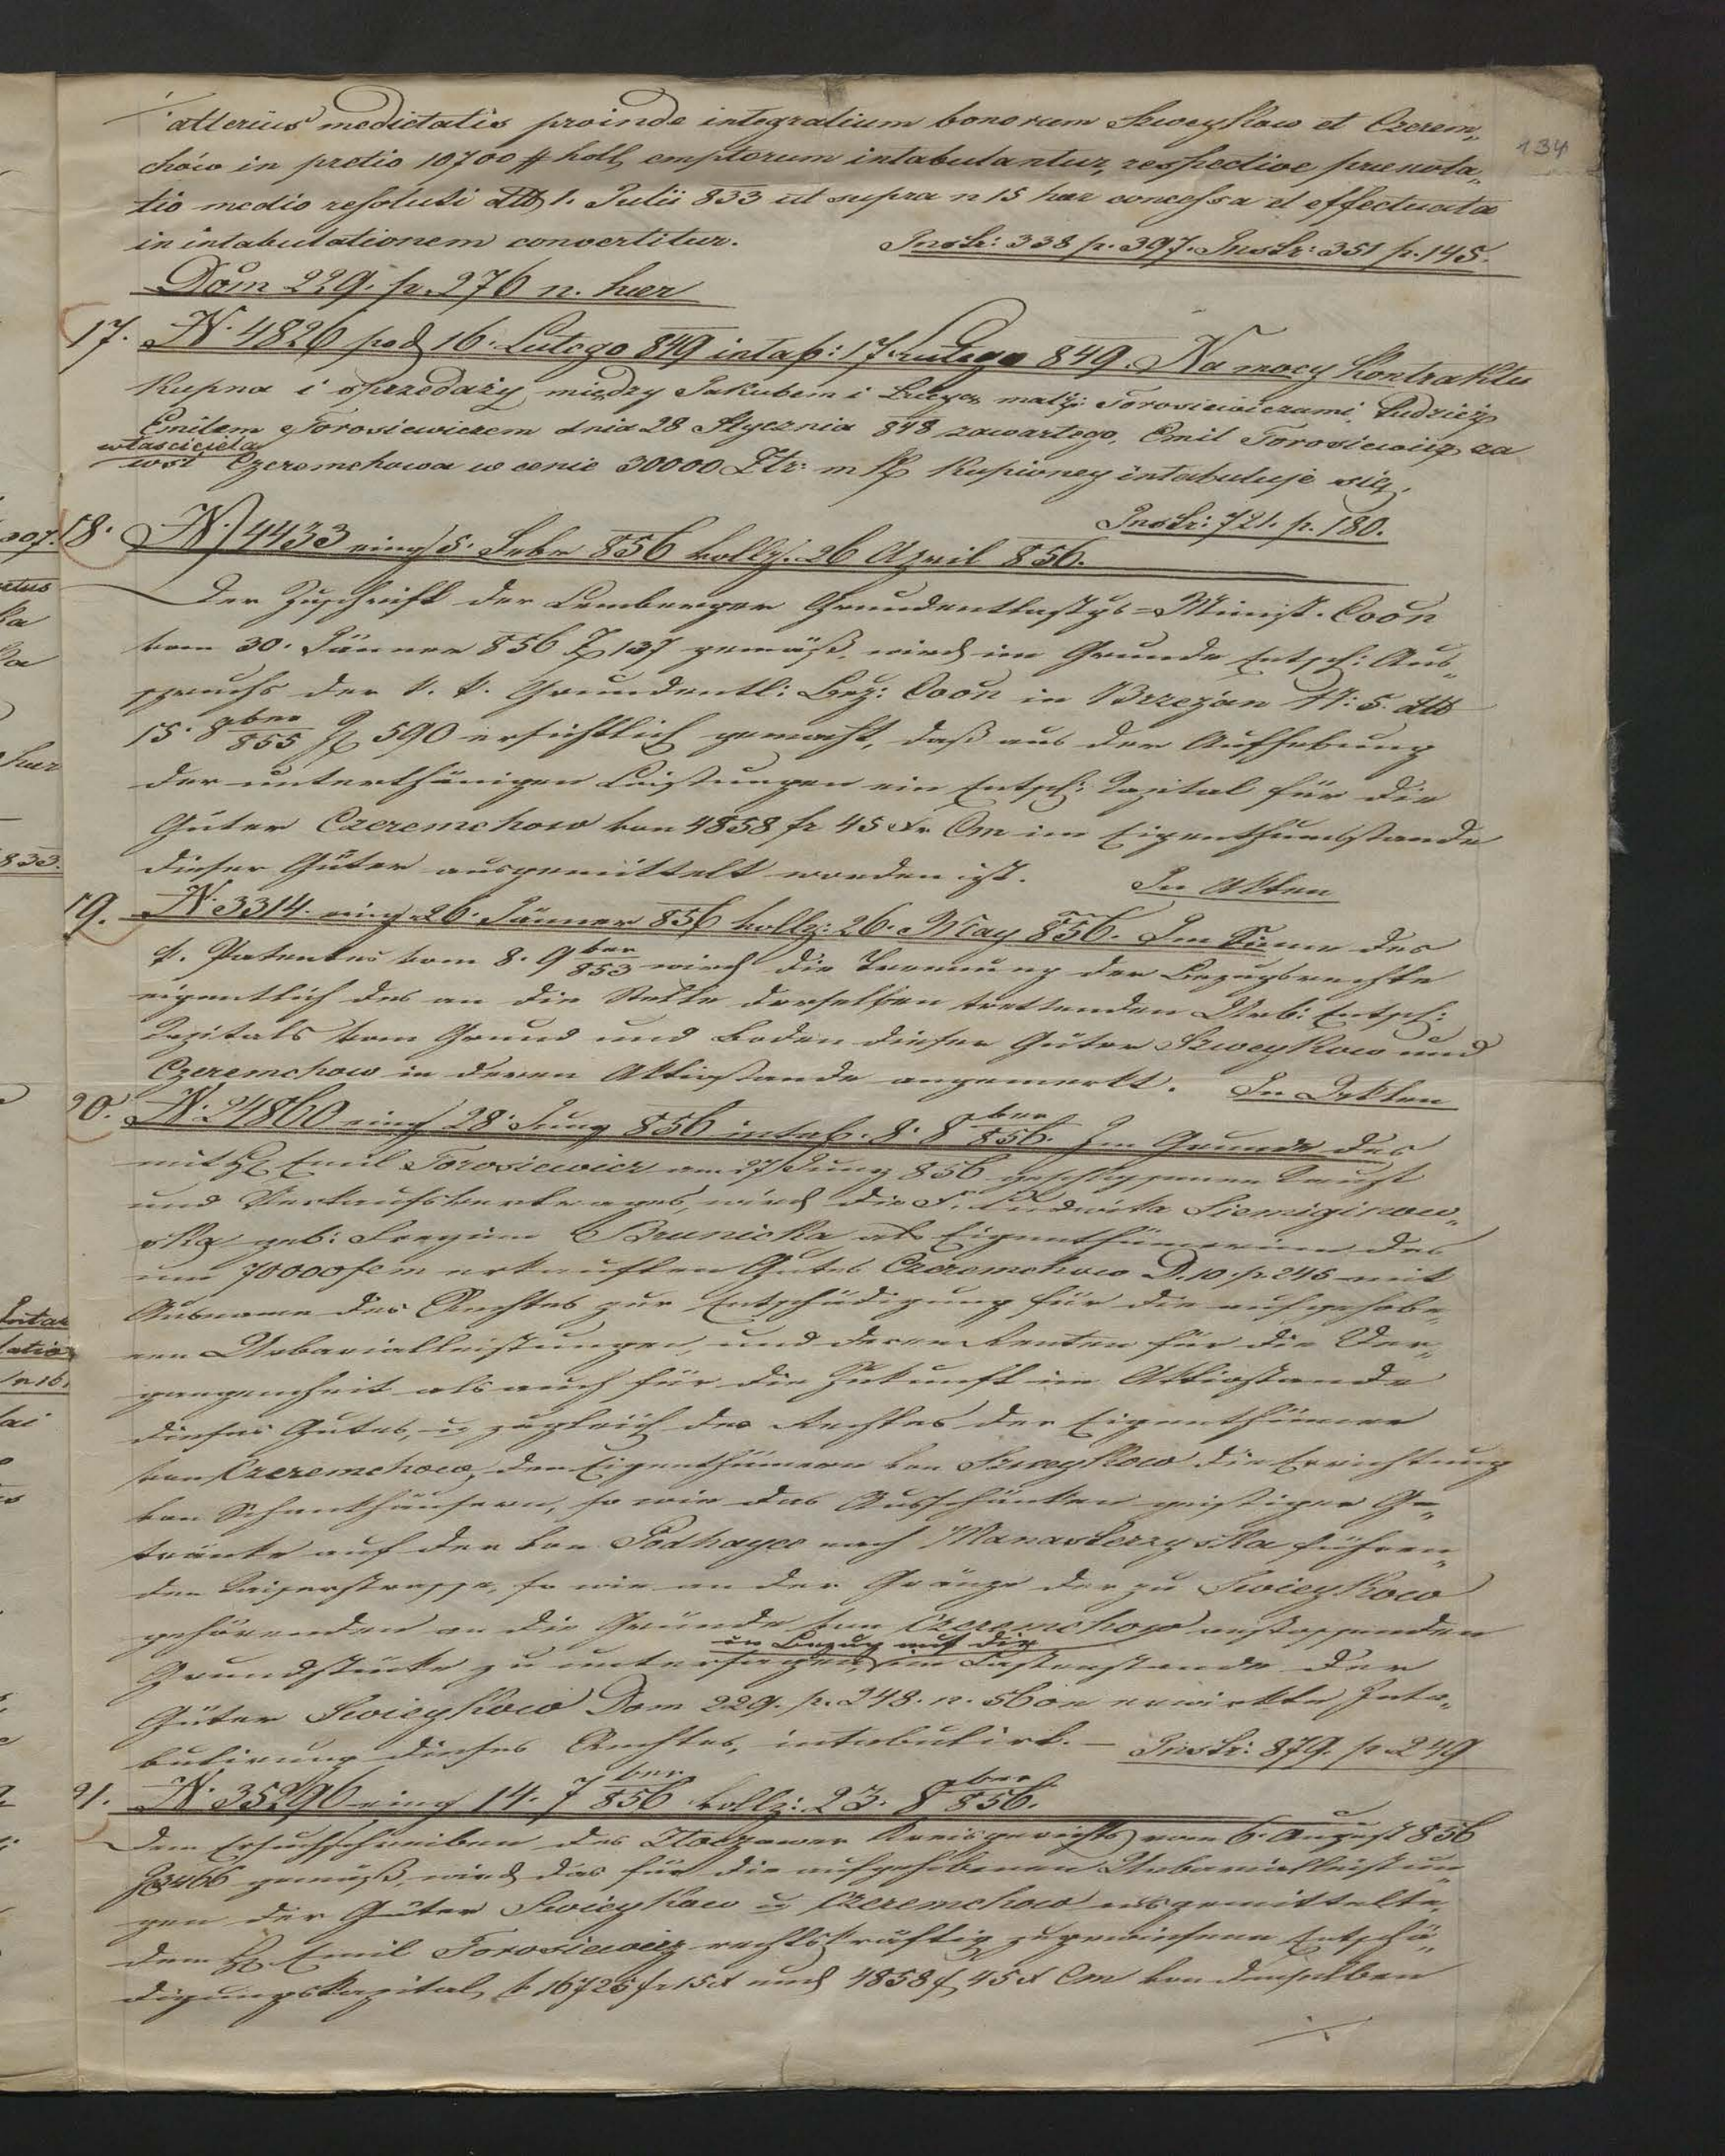 alterius medietatis proinde integralium bonorum Szweykow et Czerem„
chów in pretio 10700 # holl, emptorum intabulantur, respective prænota„
tio medio resoluti ddto 1. Julii 833 ut supra n 15 hær concessa et effectuata
in intabulationem convertitur. Instr: 338 p. 397. Instr: 351 p. 145.
134
Dom 229. p. 276 n. hær
17. N. 4826 pod 16. Lutego 849 intab: 17 Lutego 849. Na mocy Kontraktu
Kupna i sprzedaży między Jakubem i Łucyą małż: Torosiewiczami, tudzież
Emilem Torosiewiczem dnia 28 Stycznia 848 zawartego, Emil Torosiewicz za
właściciela
wsi Czeremchowa w cenie 30000 Złr: m K Kupioney intabuluje się.
Instr: 721. p. 180.
18. N. 4433 eing 5. Febr 856 vollz. 26 April 856.
Der Zuschrift der Lemberger Grundentlastgs-Minist. Coon
vom 30. Jänner 856 Z 137 gemäß, wird im Grunde Entsch: Aus„
spruchs der k. k. Grundentl: Bez: Coon in Brzeżan N: 5. ddto
15. 8ber 855 Z 590 ersichtlich gemacht, daß aus der Aufhebung
der unterthänigen Leistungen ein Entsch: Capital für die
Güter Czeremchow von 4858 fr 45 xr Cm im Eigenthumsstande
dieser Güter ausgemittelt worden ist. In Akten
19. N. 3314. eing. 26. Jänner 856 vollz: 26. May 856. Im Sinne des
k. Patentes vom 8. 9ber 853 wird die Trennung der Bezugsrechte
eigentlich des an die Stelle derselben trettenden Urb: Entsch:
Capitals vom Grund und Boden dieser Güter Szweykow und
Czeremchow in deren Aktivstande angemerkt. In Akten
20. N. 24860 eing 28. Juny 856 intab. 8. 8ber 856. Im Grunde des
mit H Emil Torosiewicz am 27 Juny 856 geschlossenen Kaufs
und Verkaufsvertrages, wird die Fr. Ludwika Siemiginow„
ska geb: Freyinn Brunicka als Eigenthümerinn des
um 70000 f cm erkauften Gutes Czeremchow D. 10. p. 245 mit
Ausname des Rechtes zur Entschädigung für die aufgehobe„
nen Urbarialleistungen, und deren Renten für die Ver„
gangenheit als auch für die Zukunft im Aktivstande
dieses Gutes, u zugleich des Rechtes der Eigenthümer
von Czeremchow, den Eigenthümern von Szweykow die Errichtung
von Schenkhäusern, so wie das Ausschänken geistiger Ge„
tränke auf der von Podhayce nach Manasterzyska führen„
den Kaiserstrasse, so wie an der Gränze der zu Swieykow
gehörenden an die Gründe von Czeremchow anstossenden
in Bezug auf die
Grundstücke zu untersagen, im Lastenstande der
Güter Swieykow Dom 229. p. 248. n. 56 on erwirkte Inta„
bulirung dieses Rechtes, intabulirt. — Instr: 879. p. 249
21. N. 35296 eing 14. 7ber 856 vollz: 23. 8ber 856.
Dem Ersuchschreiben des Złoczower Kreisgerichts vom 6. August 856
Z 3466 gemäß wird das für die aufgehobenen Urbarialleistun„
gen der Güter Swieykow u Czeremchow ausgemittelte,
dem H Emil Torosiewicz rechtskräftig zugewiesene Entschä„
digungskapital, p 16725 fr 15 x und 4858 f 45 x Cm von denselben